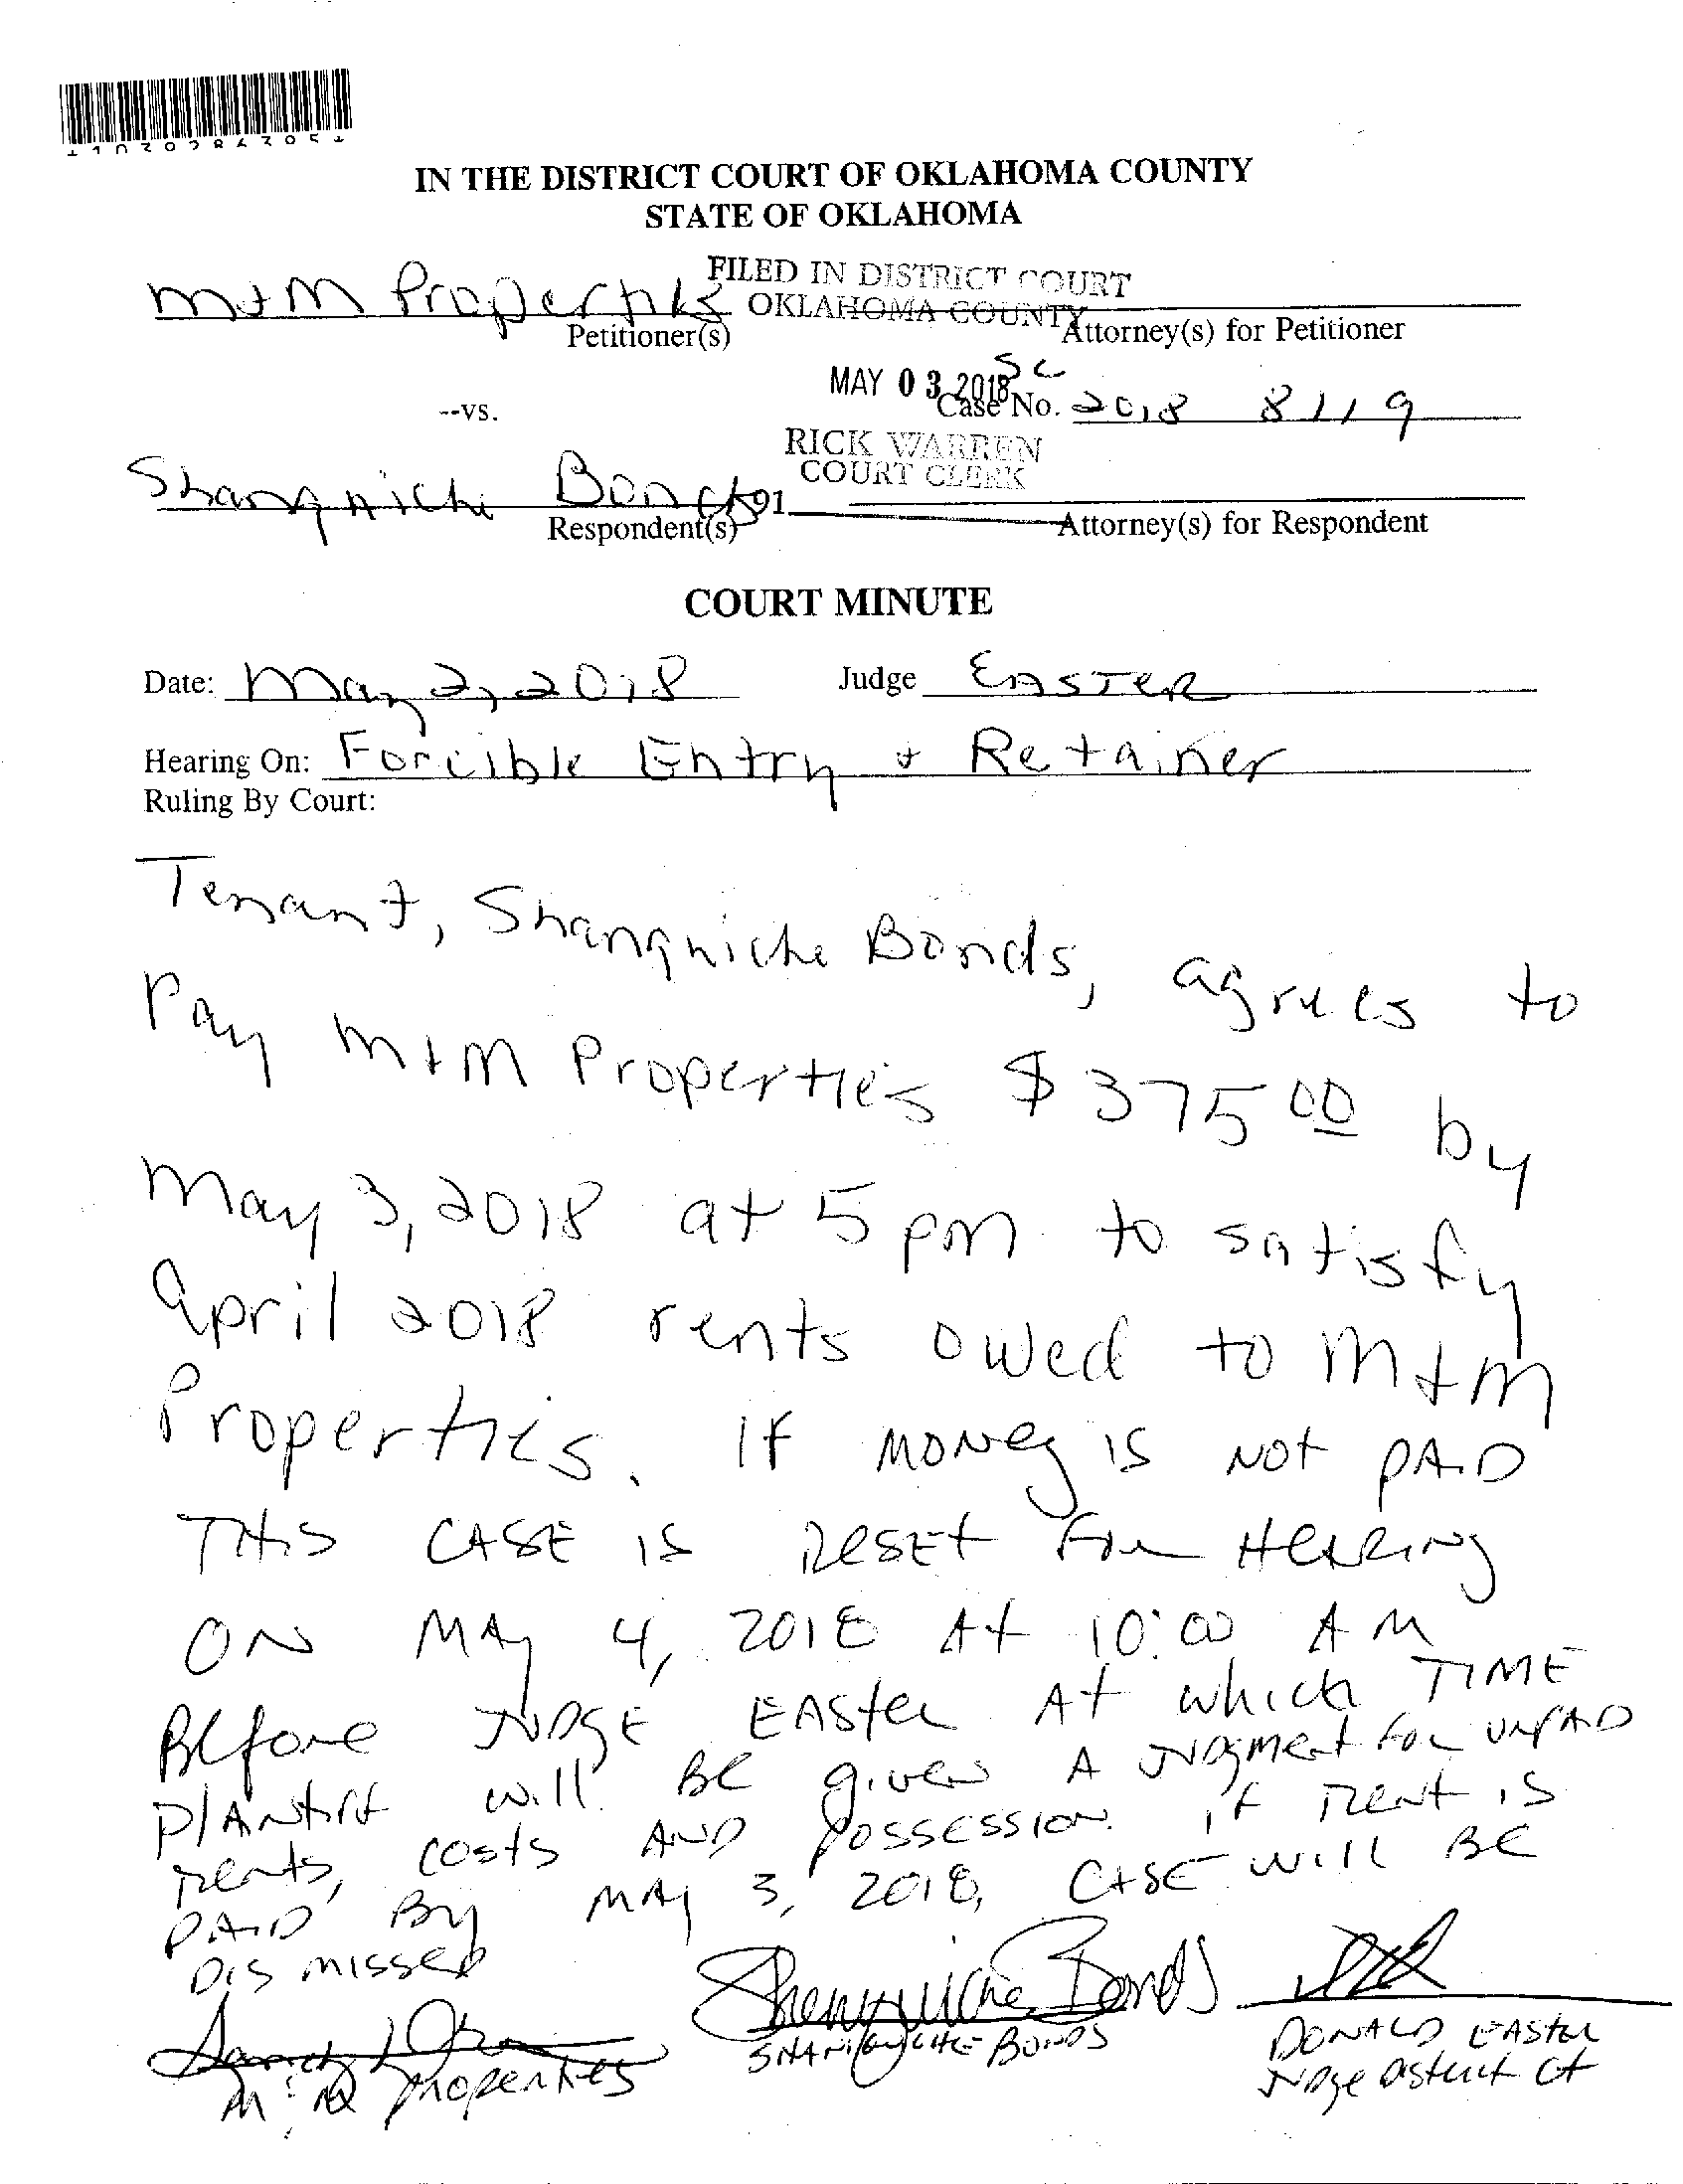 IN THE DISTRICT COURT OF OKLAHOMA COUNTY
STATE OF OKLAHOMA
M+M Properties
FILED IN DISTRICT COURT
OKLAHOMA COUNTY
Petitioner(s)
Attorney(s) for Petitioner
MAY 03 2018
SC
--vs.
Case No. 2018 8119
RICK WARREN
COURT CLERK
Shanquiche Bonds
91
Respondent(s)
Attorney(s) for Respondent
COURT MINUTE
Date: May 2, 2018 Judge EASTER
Hearing On: Forcible Entry + Retainer
Ruling By Court:
Tenant, Shanquiche Bonds, agrees to
Pay M+M Properties $375 00 by
May 3, 2018 at 5 pm to satisfy
April 2018 rents owed to M+M
Properties. If MONey is NOt PAID
THIS CASE is RESET For HEARING
ON MAY 4, 2018 At 10:00 AM
Before JUDGE EASter At which TIME
PlAntiff will BE given A JUDGMEnt for UNPAID
rents, costs AND possession. if rent is
PAID By MAY 3, 2018, CASE will BE
DISMISSED
Shanquiche Bonds
SHANIQUICHE BONDS
DONALD EASTER
JUDGE District Ct
M & M properties